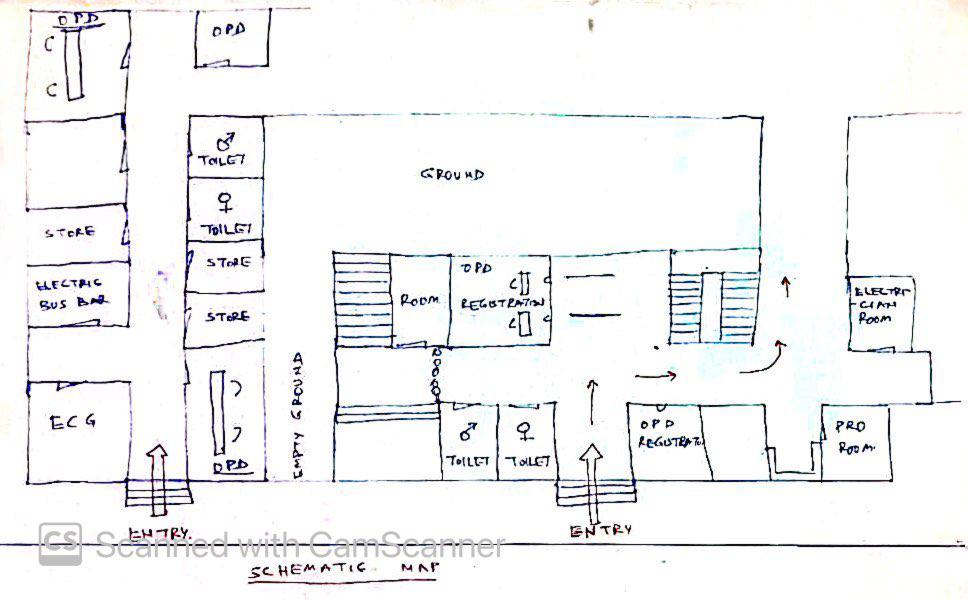 OPD
OPD
♂
TOILET
♀
TOILET
GROUND
STORE
STORE
ELECTRIC
BUS BAR
STORE
ROOM
OPD
REGISTRATION
ELECTRI-
CIAN
ROOM
EMPTY GROUND
ECG
OPD
♂
TOILET
♀
TOILET
OPD
REGISTRATN
PRO
ROOM
ENTRY.
ENTRY
CS Scanned with CamScanner
SCHEMATIC MAP